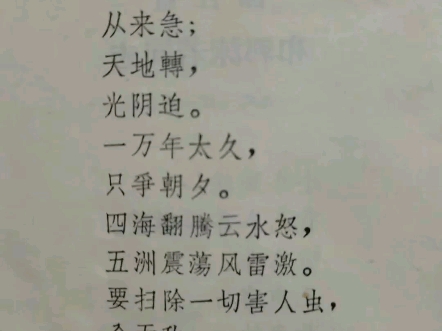 从来急；
天地轉，
光阴迫。
一万年太久，
只爭朝夕。
四海翻騰云水怒，
五洲震蕩风雷激。
要扫除一切害人虫，